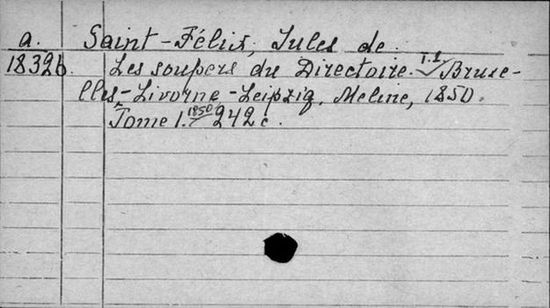 a. Saint-Félix, Jules de.
18326. Les soupers du Directoire. T.1 Bruxe-
lles-Livorne-Leipzig, Meline, 1850.
Tome 1. 1850 242 c.